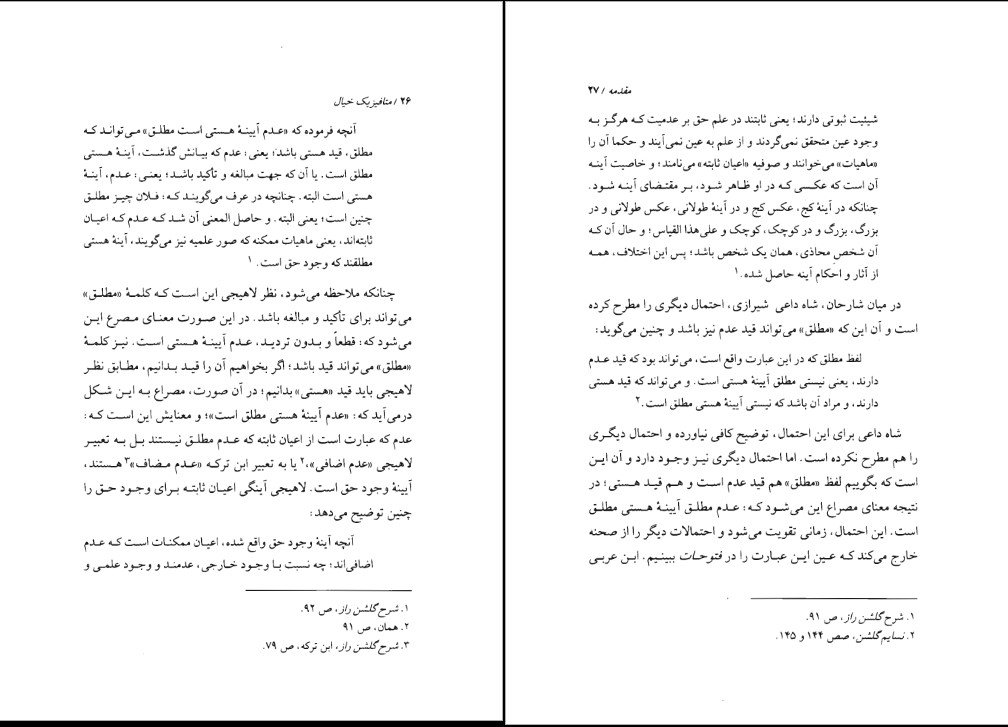 ۲۶ / متافیزیک خیال
آنچه فرموده که «عدم آیینهٔ هستی است مطلق» می‌تواند که
مطلق، قید هستی باشد؛ یعنی: عدم که بیانش گذشت، آینهٔ هستی
مطلق است. یا آن که جهت مبالغه و تأکید باشد؛ یعنی: عدم، آینهٔ
هستی است البته. چنانچه در عرف می‌گویند که: فلان چیز مطلق
چنین است؛ یعنی البته. و حاصل المعنی آن شد که عدم که اعیان
ثابته‌اند، یعنی ماهیات ممکنه که صور علمیه نیز می‌گویند، آینهٔ هستی
مطلقند که وجود حق است. ۱
چنانکه ملاحظه می‌شود، نظر لاهیجی این است که کلمهٔ «مطلق»
می‌تواند برای تأکید و مبالغه باشد. در این صورت معنای مصرع این
می‌شود که: قطعاً و بدون تردید، عدم آیینهٔ هستی است. نیز کلمهٔ
«مطلق» می‌تواند قید باشد؛ اگر بخواهیم آن را قید بدانیم، مطابق نظر
لاهیجی باید قید «هستی» بدانیم؛ در آن صورت، مصراع به این شکل
درمی‌آید که: «عدم آیینهٔ هستی مطلق است»؛ و معنایش این است که:
عدم که عبارت است از اعیان ثابته که عدم مطلق نیستند بل به تعبیر
لاهیجی «عدم اضافی»،۲ یا به تعبیر ابن ترکه «عدم مضاف»۳ هستند،
آیینهٔ وجود حق است. لاهیجی آینگی اعیان ثابته برای وجود حق را
چنین توضیح می‌دهد:
آنچه آینهٔ وجود حق واقع شده، اعیان ممکنات است که عدم
اضافی‌اند؛ چه نسبت با وجود خارجی، عدمند و وجود علمی و
۱. شرح گلشن راز، ص ۹۲.
۲. همان، ص ۹۱
۳. شرح گلشن راز، ابن ترکه، ص ۷۹.
مقدمه / ۲۷
شیئیت ثبوتی دارند؛ یعنی ثابتند در علم حق بر عدمیت که هرگز به
وجود عین متحقق نمی‌گردند و از علم به عین نمی‌آیند و حکما آن را
«ماهیات» می‌خوانند و صوفیه «اعیان ثابته» می‌نامند؛ و خاصیت آینه
آن است که عکسی که در او ظاهر شود، بر مقتضای آینه شود.
چنانکه در آینهٔ کج، عکس کج و در آینهٔ طولانی، عکس طولانی و در
بزرگ، بزرگ و در کوچک، کوچک و علی‌هذا القیاس؛ و حال آن که
آن شخص محاذی، همان یک شخص باشد؛ پس این اختلاف، همه
از آثار و احکام آینه حاصل شده.۱
در میان شارحان، شاه داعی شیرازی، احتمال دیگری را مطرح کرده
است و آن این که «مطلق» می‌تواند قید عدم نیز باشد و چنین می‌گوید:
لفظ مطلق که در این عبارت واقع است، می‌تواند بود که قید عدم
دارند، یعنی نیستی مطلق آیینهٔ هستی است. و می‌تواند که قید هستی
دارند، و مراد آن باشد که نیستی آیینهٔ هستی مطلق است.۲
شاه داعی برای این احتمال، توضیح کافی نیاورده و احتمال دیگری
را هم مطرح نکرده است. اما احتمال دیگری نیز وجود دارد و آن این
است که بگوییم لفظ «مطلق» هم قید عدم است و هم قید هستی؛ در
نتیجه معنای مصراع این می‌شود که: عدم مطلق آیینهٔ هستی مطلق
است. این احتمال، زمانی تقویت می‌شود و احتمالات دیگر را از صحنه
خارج می‌کند که عین این عبارت را در فتوحات ببینیم. ابن عربی
۱. شرح گلشن راز، ص ۹۱.
۲. نسایم گلشن، صص ۱۴۴ و ۱۴۵.